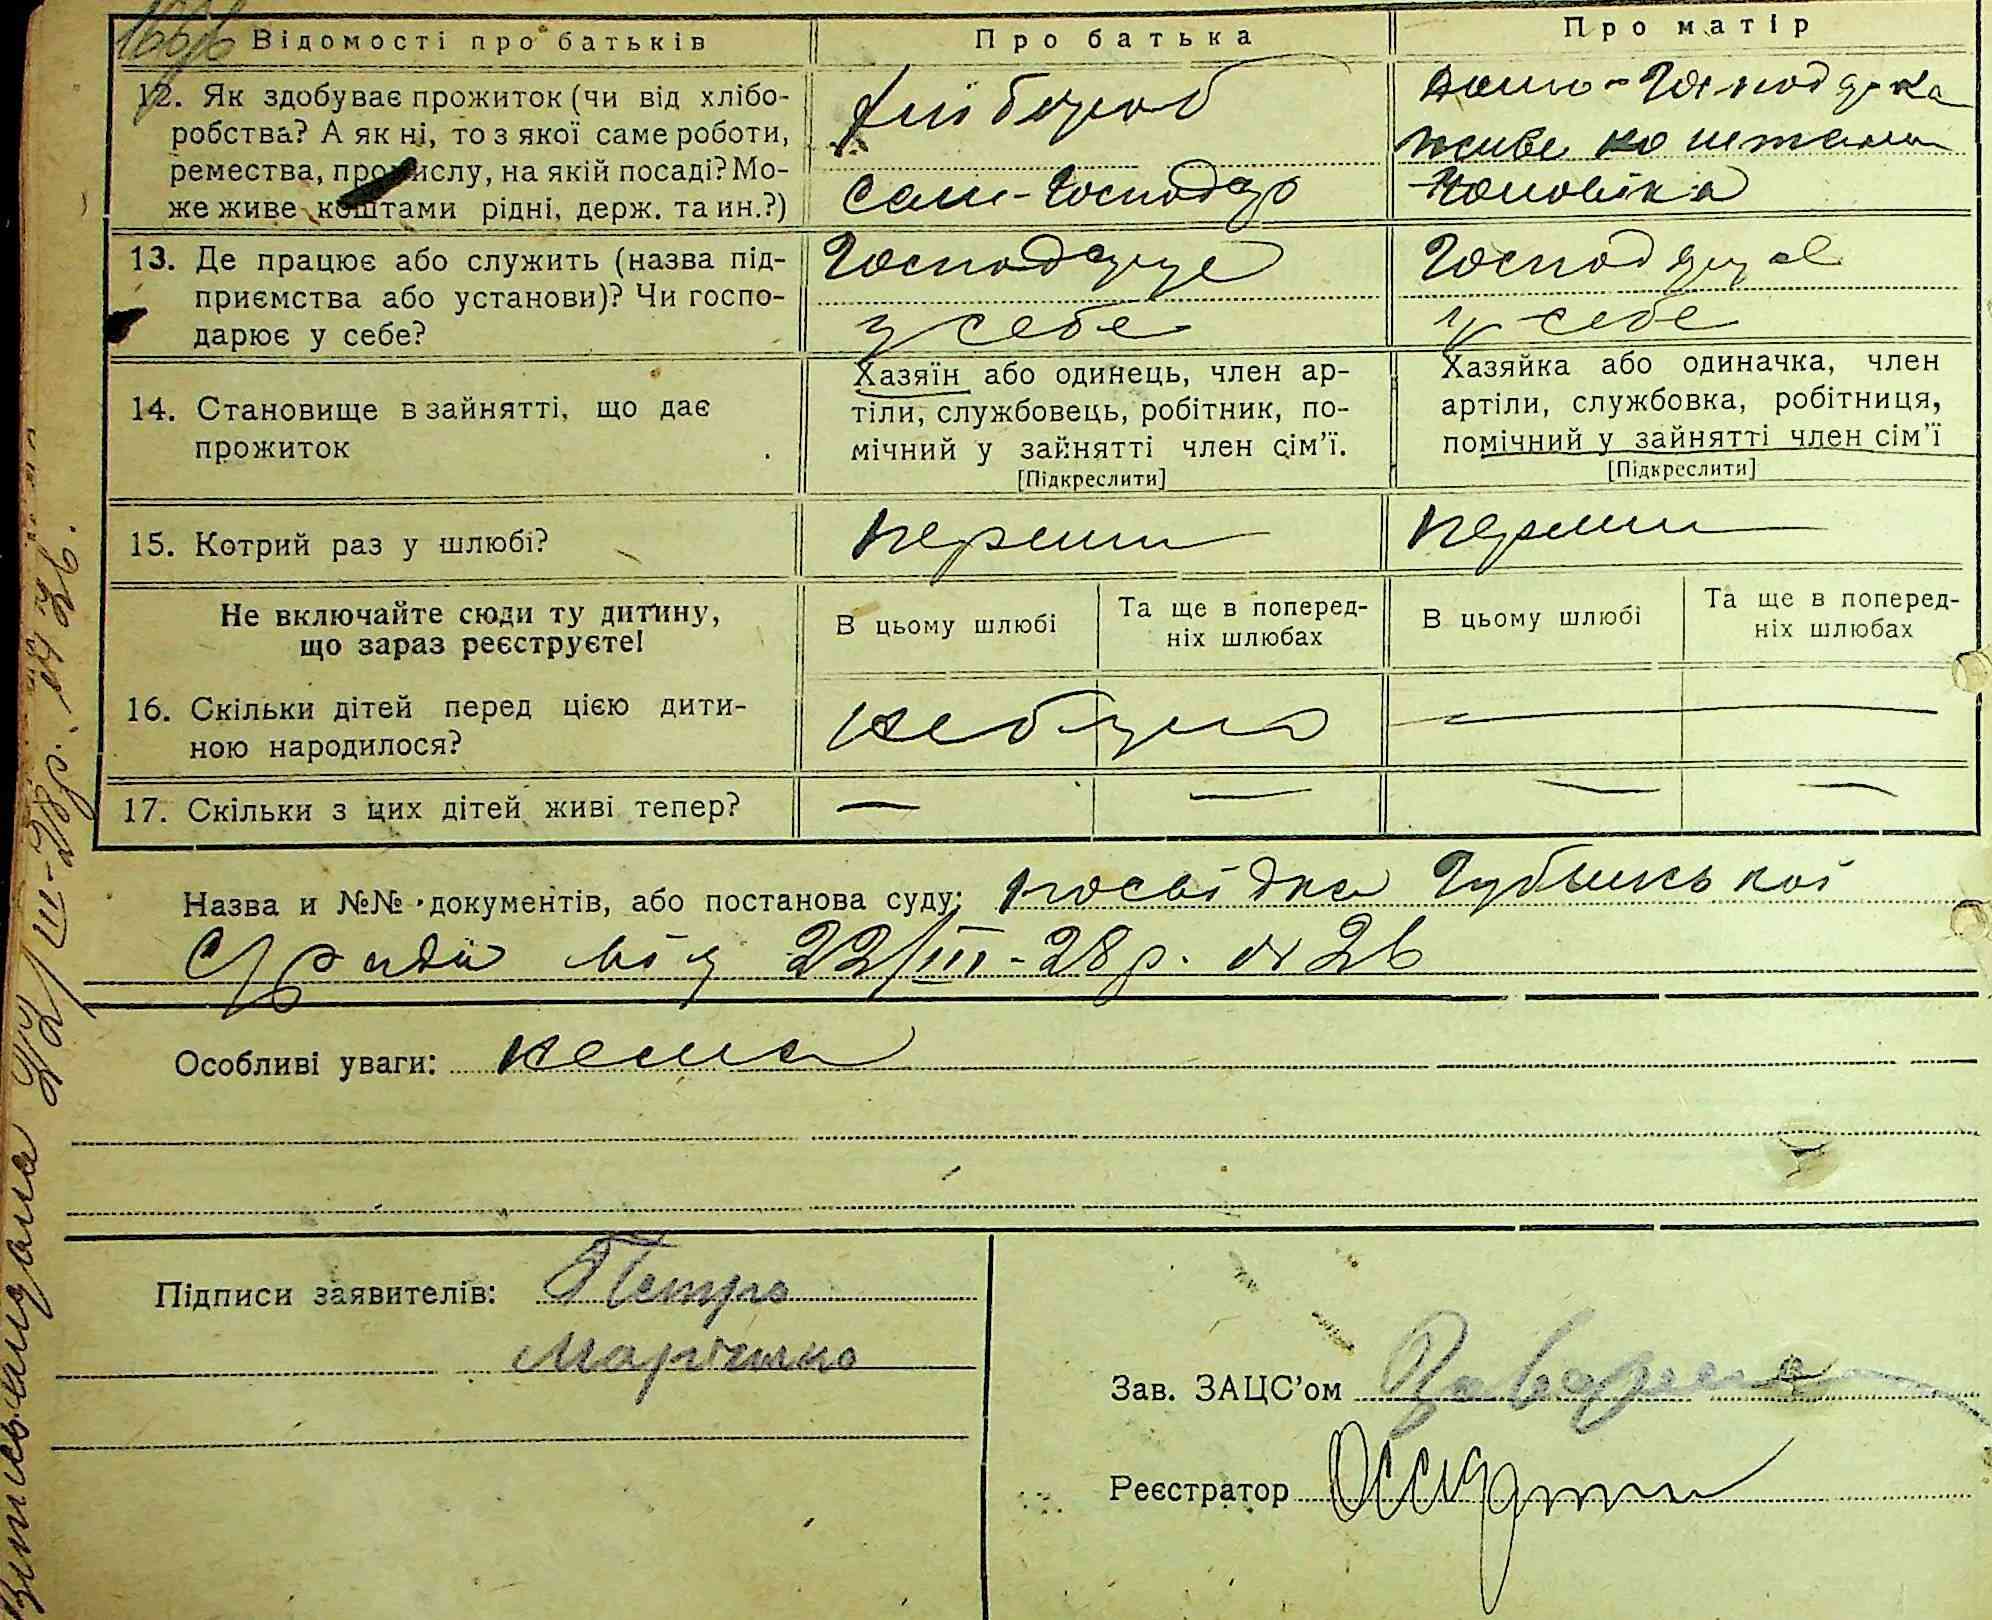 Відомості про батьків
Про батька
Про матір
12. Як здобуває прожиток (чи від хлібо-
робства? А як ні, то з якої саме роботи,
ремества, промислу, на якій посаді? Мо-
же живе коштами рідні, держ. та ин.?)
хлібороб
сам-господар
дом-господарка
живе коштами
чоловіка
13. Де працює або служить (назва під-
приємства або установи)? Чи госпо-
дарює у себе?
Господарує
у себе
Господарує
у себе
14. Становище в зайнятті, що дає
прожиток
Хазяїн або одинець, член ар-
тіли, службовець, робітник, по-
мічний у зайнятті член сім'ї.
[Підкреслити]
Хазяйка або одиначка, член
артіли, службовка, робітниця,
помічний у зайнятті член сім'ї
[Підкреслити]
15. Котрий раз у шлюбі?
перший
перший
Не включайте сюди ту дитину,
що зараз реєструєте!
В цьому шлюбі
Та ще в поперед-
ніх шлюбах
В цьому шлюбі
Та ще в поперед-
ніх шлюбах
16. Скільки дітей перед цією дити-
ною народилося?
не було
—
17. Скільки з цих дітей живі тепер?
— — — —
Назва и №№ документів, або постанова суду: посвідка
С/ради від 22/III-28р. № 26
Особливі уваги: нема
Підписи заявителів: Петро
Зав. ЗАЦС'ом
Реєстратор
22/III-28р. № 26.